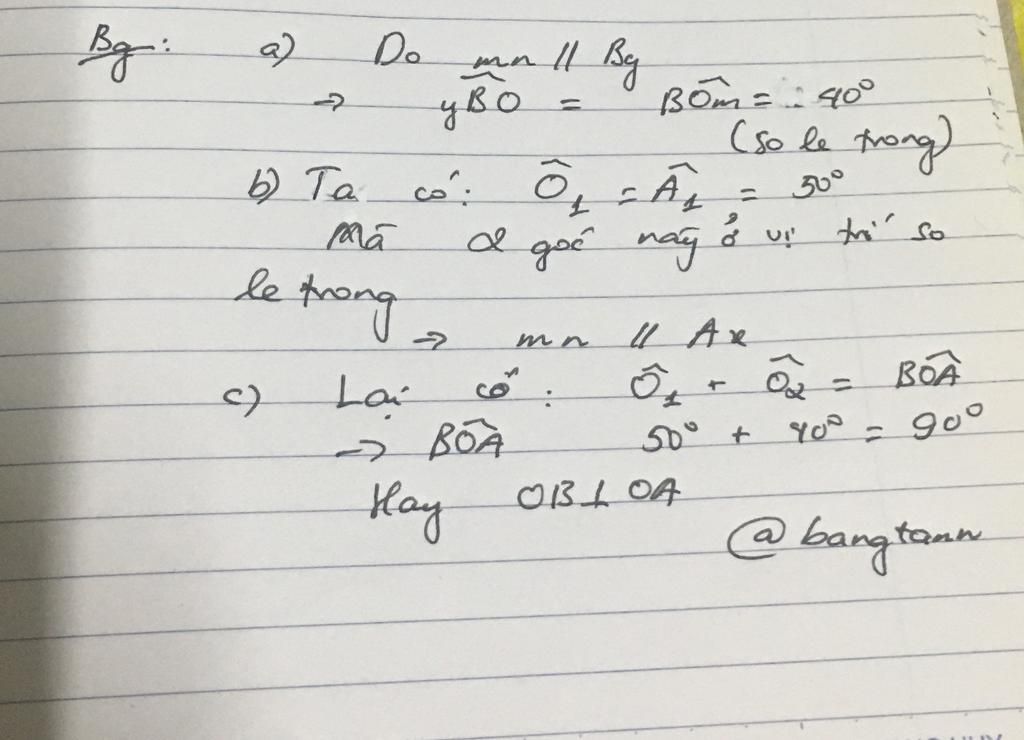 Bg: a) Do mn // By
→ yB̂O = BÔm = 40°
(so le trong)
b) Ta có: Ô₁ = Â₁ = 50°
Mà 2 góc này ở vị trí so
le trong
→ mn // Ax
c) Lại có: Ô₁ + Ô₂ = BÔA
→ BÔA 50° + 40° = 90°
Hay OB ⊥ OA
@bangtann